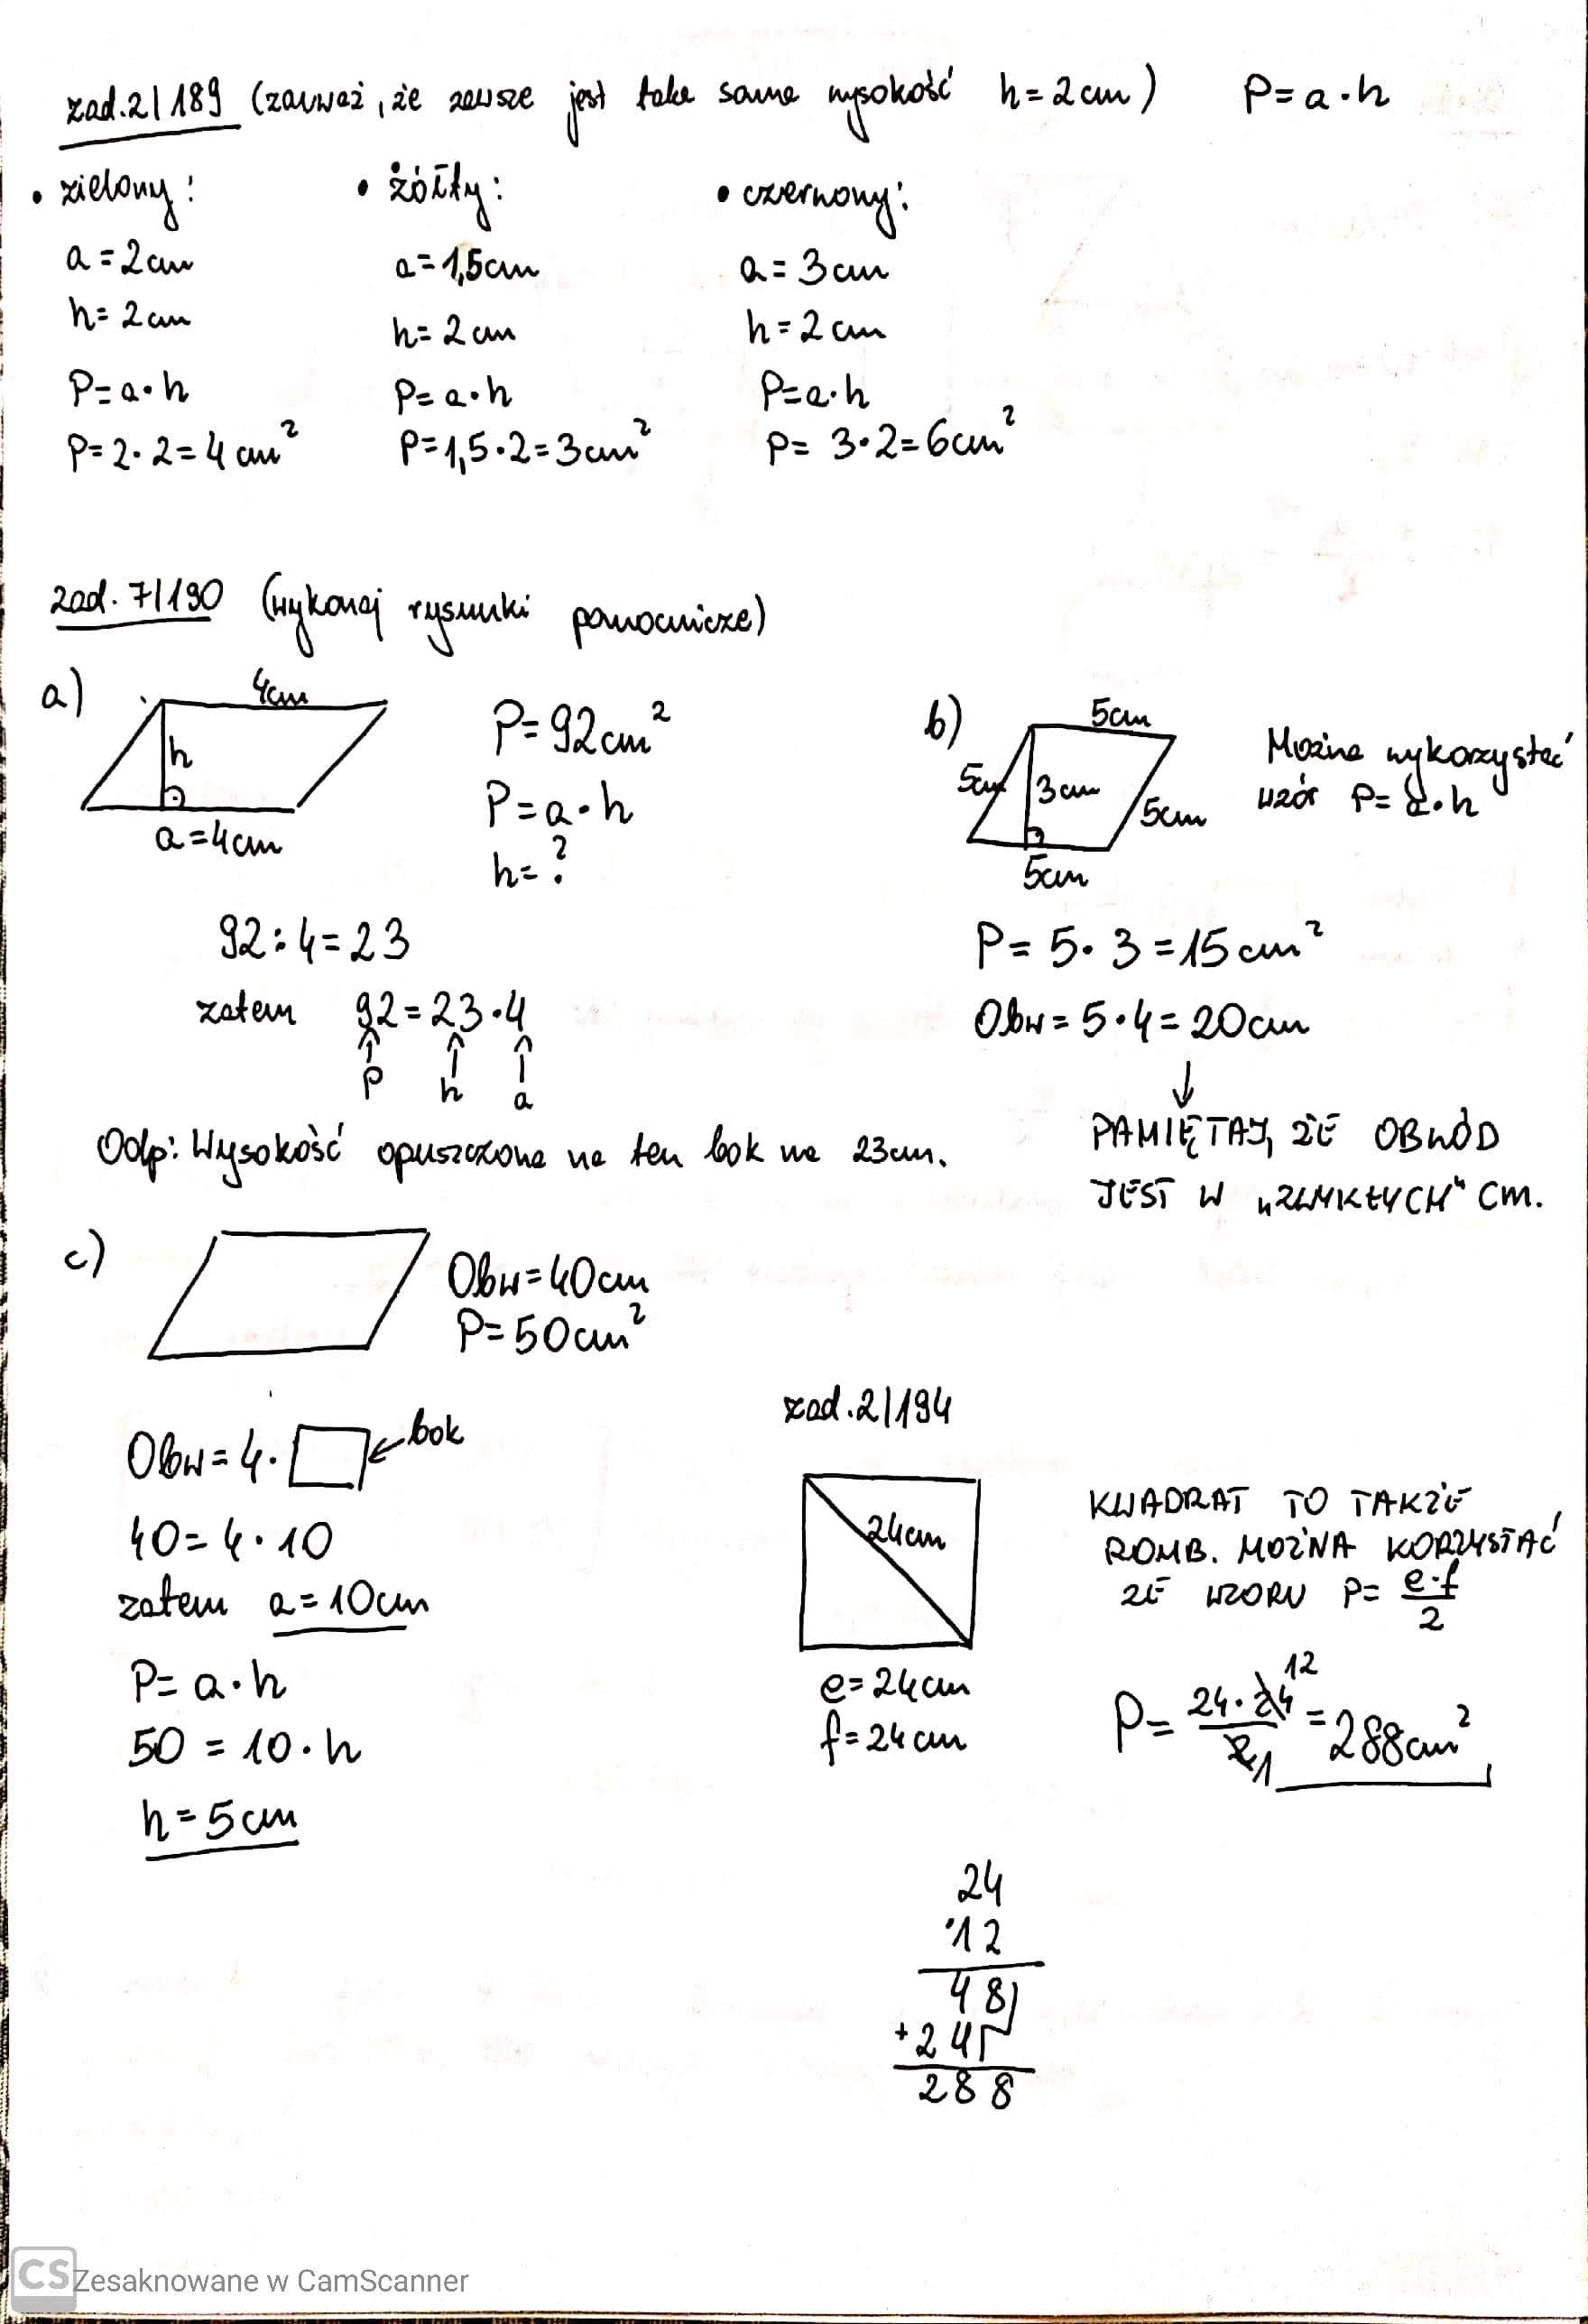 zad.2/189 (zauważ, że zawsze jest taka sama wysokość h=2cm) P=a·h
• zielony:
a=2cm
h=2cm
P=a·h
P=2·2=4cm²
• żółty:
a=1,5cm
h=2cm
P=a·h
P=1,5·2=3cm²
• czerwony:
a=3cm
h=2cm
P=a·h
P=3·2=6cm²
zad.7/190 (wykonaj rysunki pomocnicze)
a)
4cm
h
a=4cm
P=92cm²
P=a·h
h=?
92:4=23
zatem 92=23·4
P h a
Odp: Wysokość opuszczona na ten bok ma 23cm.
b)
5cm
5cm
3cm
5cm
5cm
Można wykorzystać
wzór P=a·h
P=5·3=15cm²
Obw=5·4=20cm
↓
PAMIĘTAJ, ŻE OBWÓD
JEST W „ZWYKŁYCH" CM.
c)
Obw=40cm
P=50cm²
Obw=4·□ ← bok
40=4·10
zatem a=10cm
P=a·h
50=10·h
h=5cm
zad.2/194
24cm
e=24cm
f=24cm
KWADRAT TO TAKŻE
ROMB. MOŻNA KORZYSTAĆ
ZE WZORU P=e·f/2
P=24·24¹²/2₁=288cm²
24
·12
48
+24
288
CS Zesaknowane w CamScanner